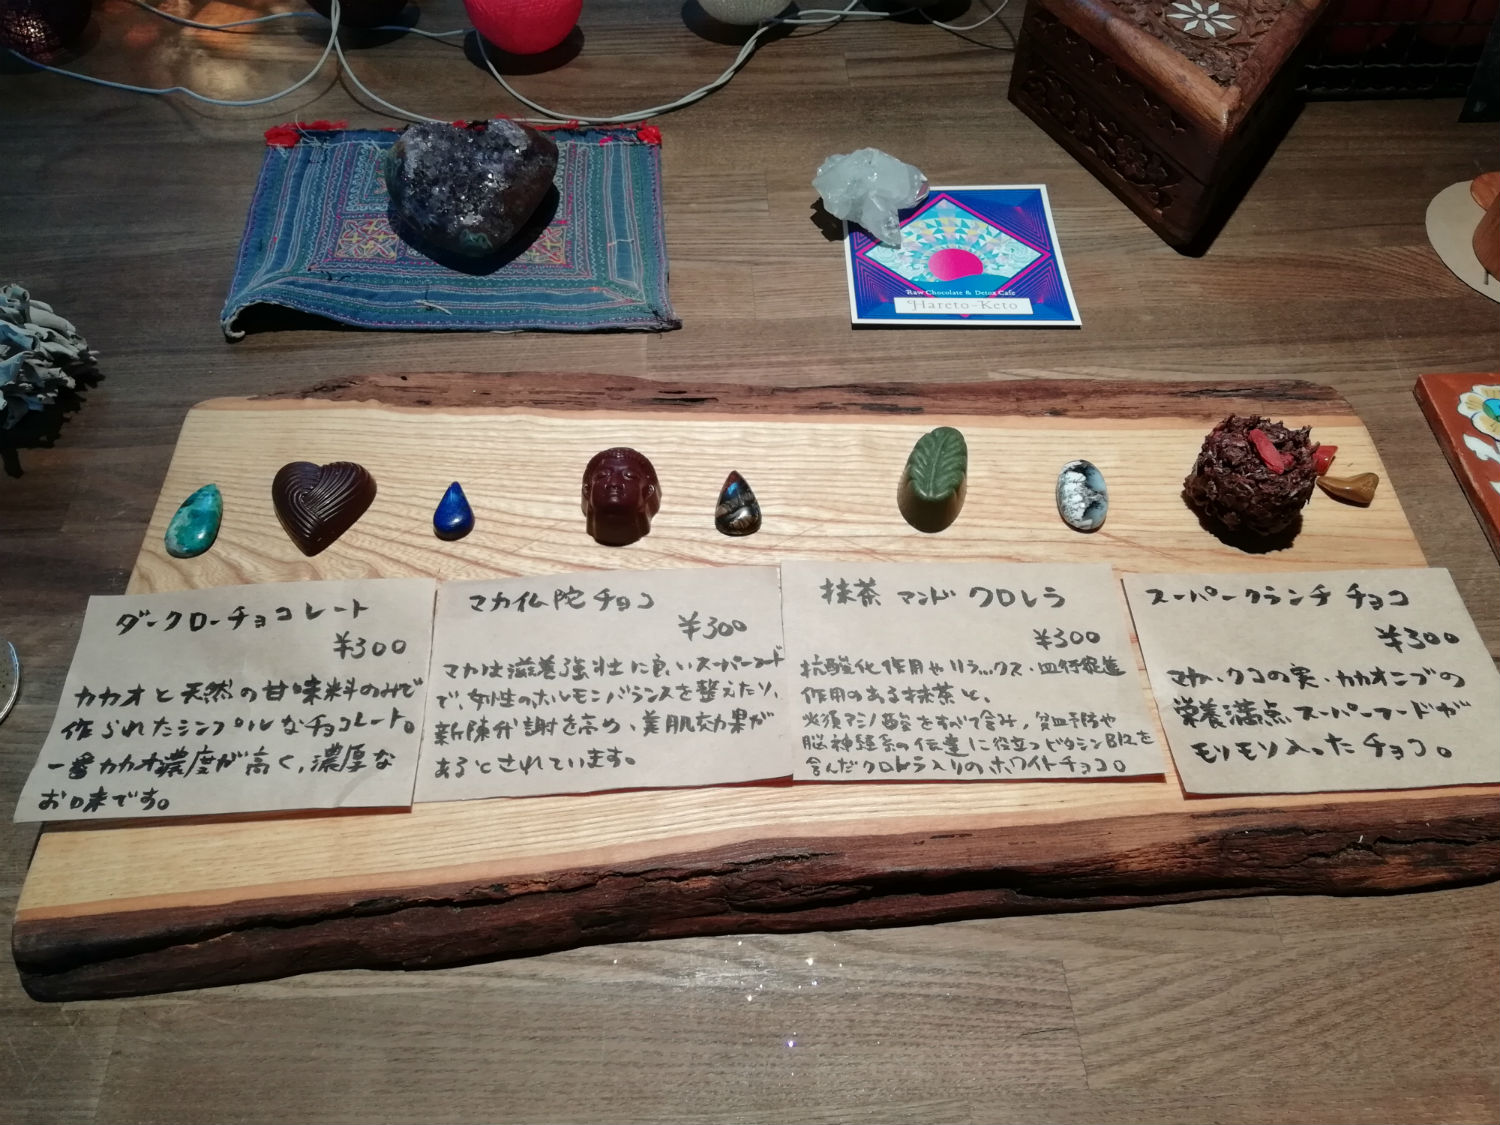 Raw Chocolate & Detox Cafe
Hareto-Keto
ダークローチョコレート
¥300
カカオと天然の甘味料のみで
作られたシンプルなチョコレート。
一番カカオ濃度が高く、濃厚な
お味です。
マカ仏陀チョコ
¥300
マカは滋養強壮に良いスーパーフード
で、女性のホルモンバランスを整えたり、
新陳代謝を高め、美肌効果が
あるとされています。
抹茶マンド クロレラ
¥300
抗酸化作用やリラックス・血行促進
作用のある抹茶と、
必須アミノ酸をすべて含み、貧血予防や
脳神経系の伝達に役立つビタミンB12を
含んだクロレラ入りのホワイトチョコ。
スーパークランチチョコ
¥300
マカ、クコの実・カカオニブの
栄養満点スーパーフードが
モリモリ入ったチョコ。